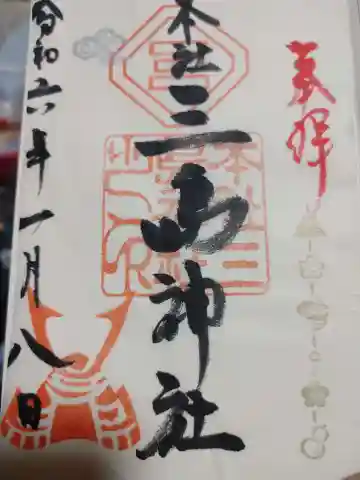 奉拝
本社
三島神社
令和六年一月八日